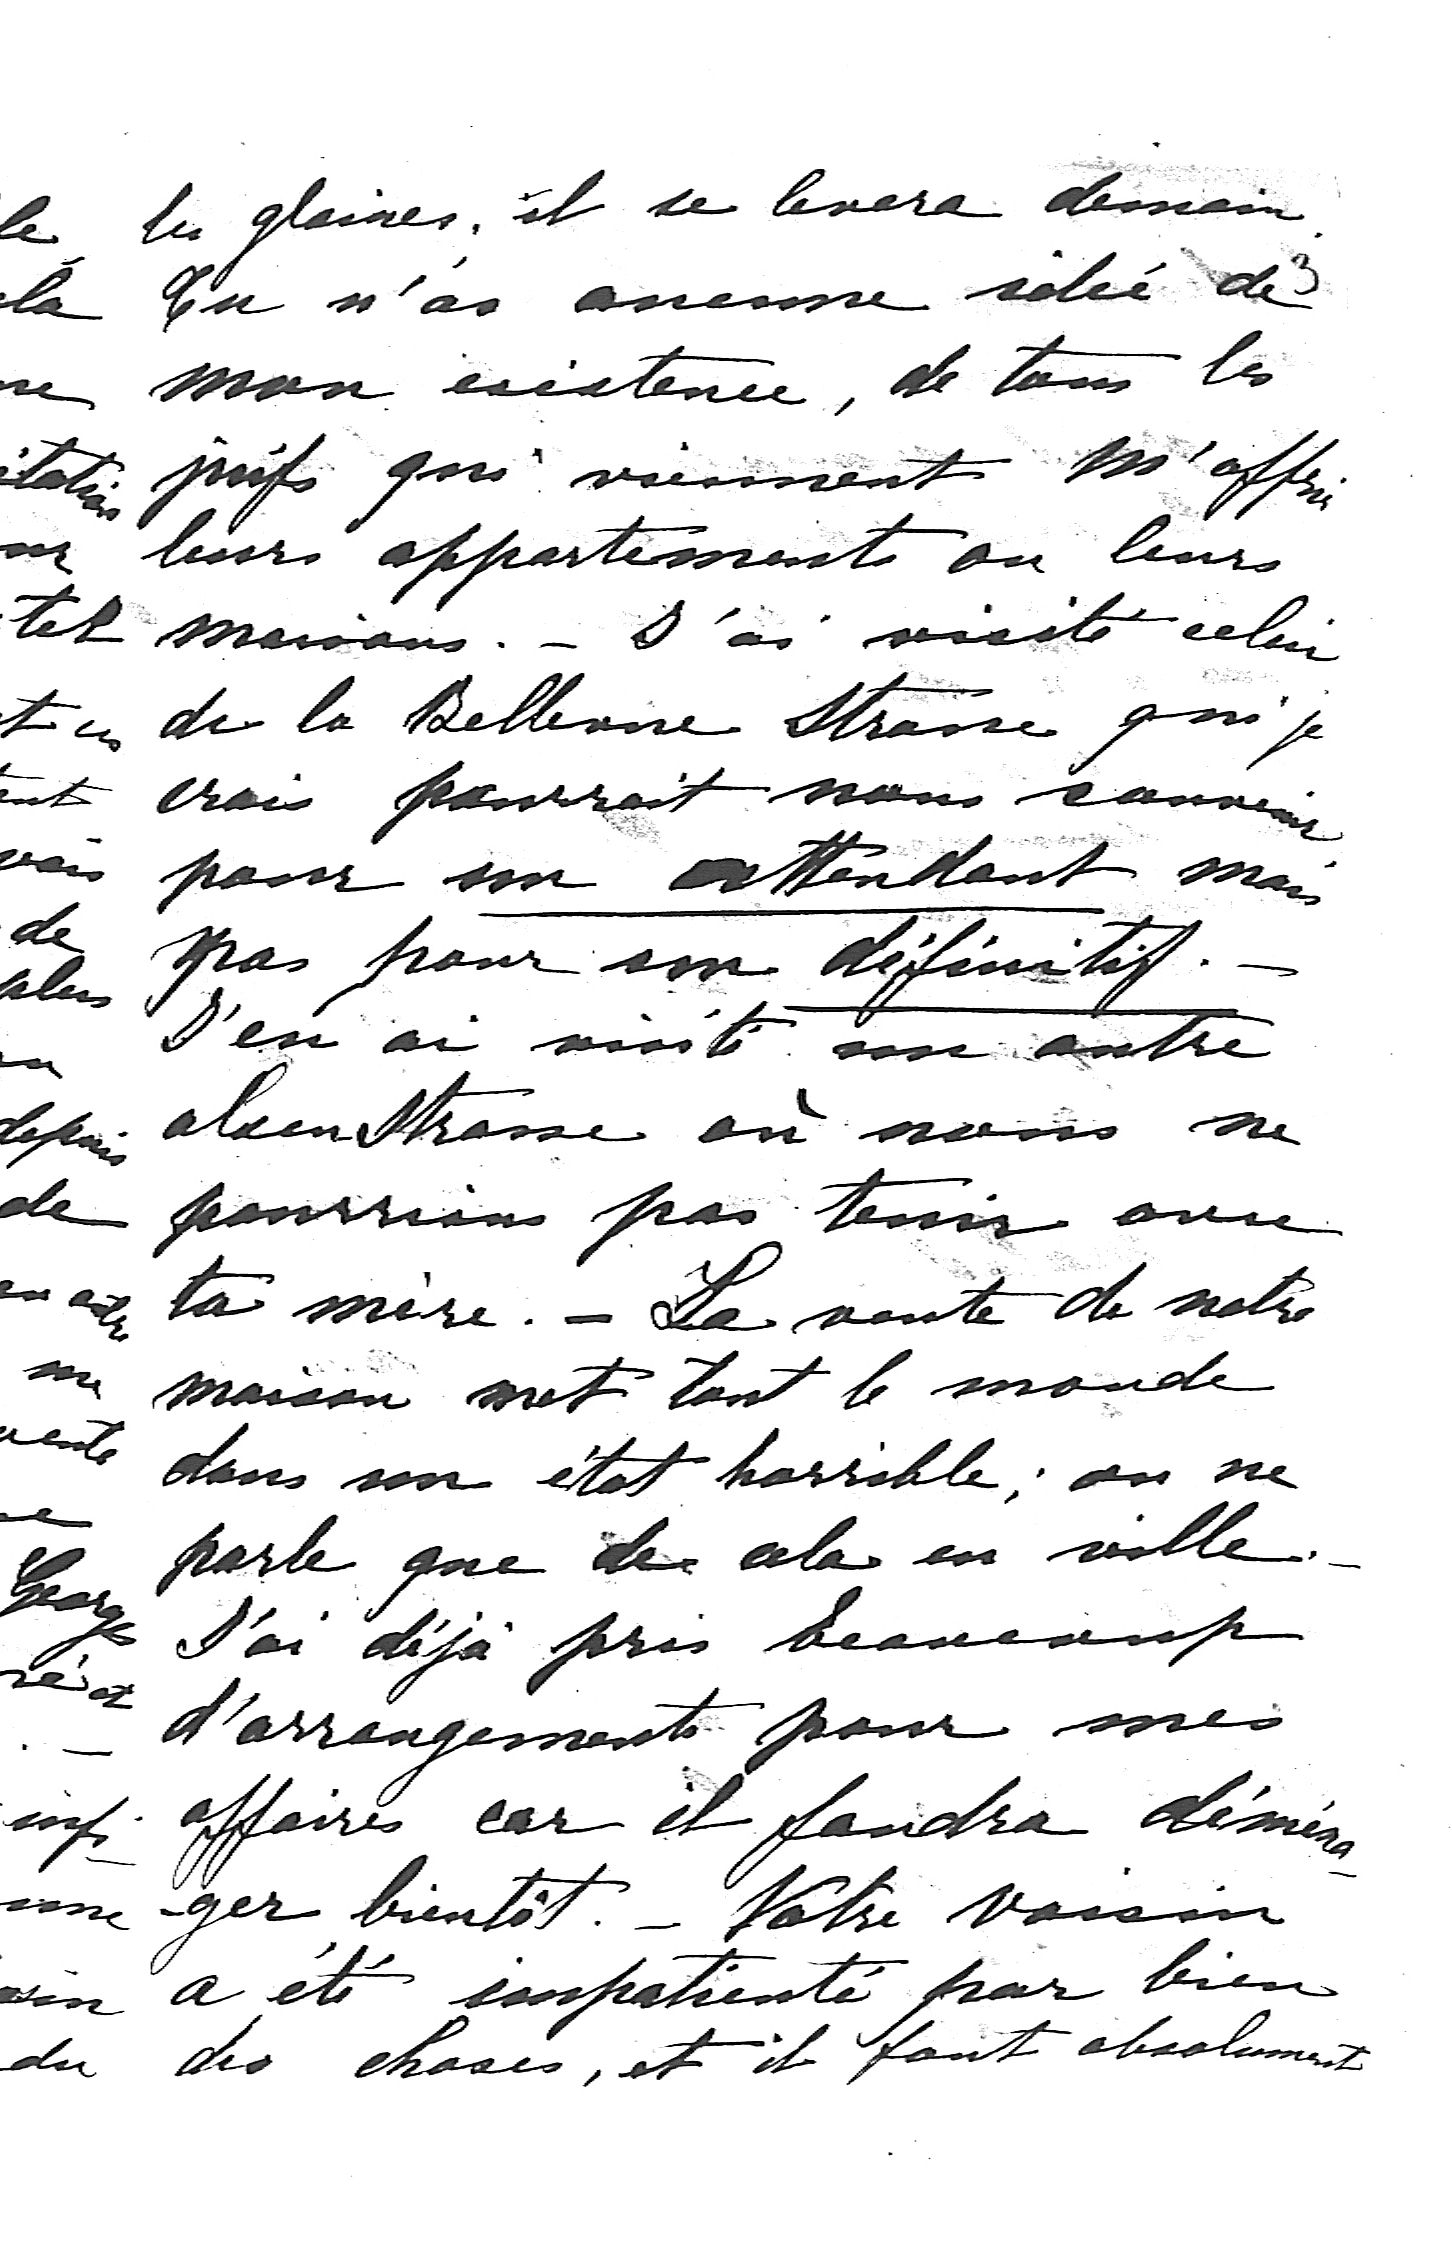 les glaires, il se levera demain.
Tu n'as aucune idée de
3
mon existence, de tous les
juifs qui viennent m'offrir
leurs appartements ou leurs
maisons. - J'ai visité celui
de la Bellevue Strasse qui je
crois pourrait nous convenir
pour un attendant mais
pas pour un définitif. -
J'en ai visité un autre
alsen Strasse où nous ne
pourrions pas tenir avec
ta mère. - La vente de notre
maison met tout le monde
dans un état horrible; on ne
parle que de cela en ville. -
J'ai déjà pris beaucoup
d'arrangements pour mes
affaires car il faudra déména-
-ger bientôt. - Votre voisin
a été impatienté par bien
des choses, et il faut absolument